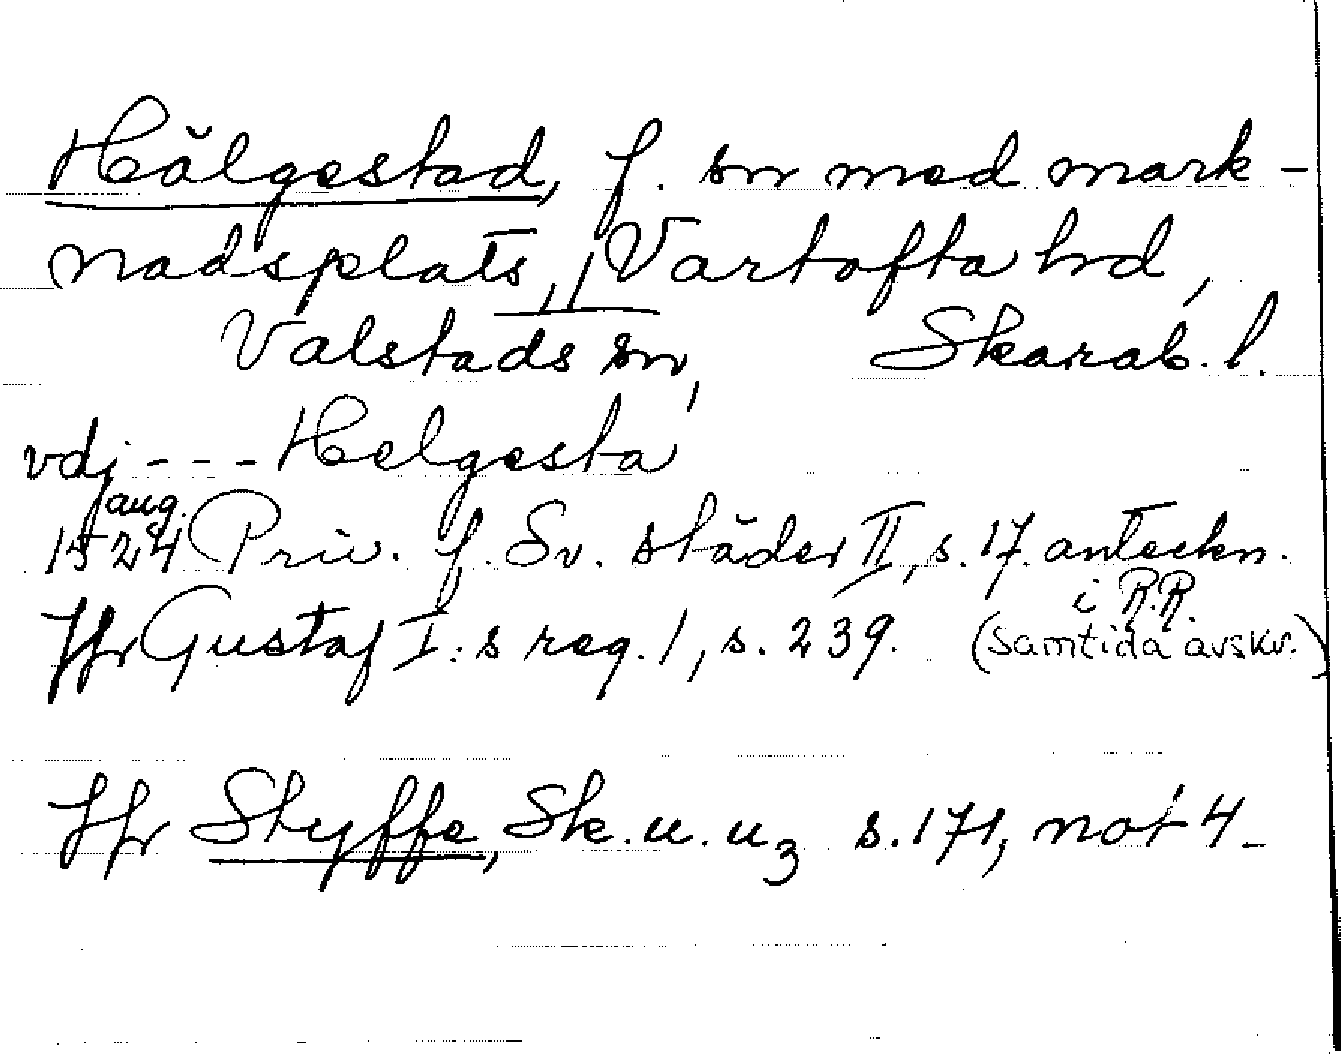 Hälgestad, f. sn med mark-
nadsplats, // Vartofta hd,
Valstads sn, Skarab. l.
vdj - - - Helgesta
aug.
1524 Priv. f. Sv. städer II, s. 17. anteckn.
i R.R.
Jfr Gustaf I:s reg. 1, s. 239. (samtida avskr.)
Jfr Styffe, Sk. u. u3 s. 171, not 4.